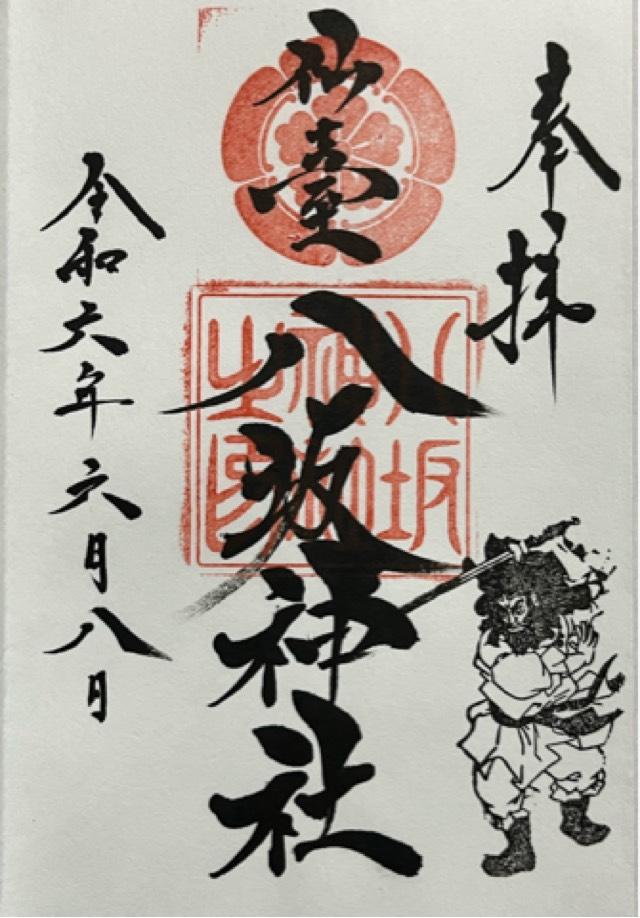 奉拝
仙臺
八坂神社
令和六年六月八日